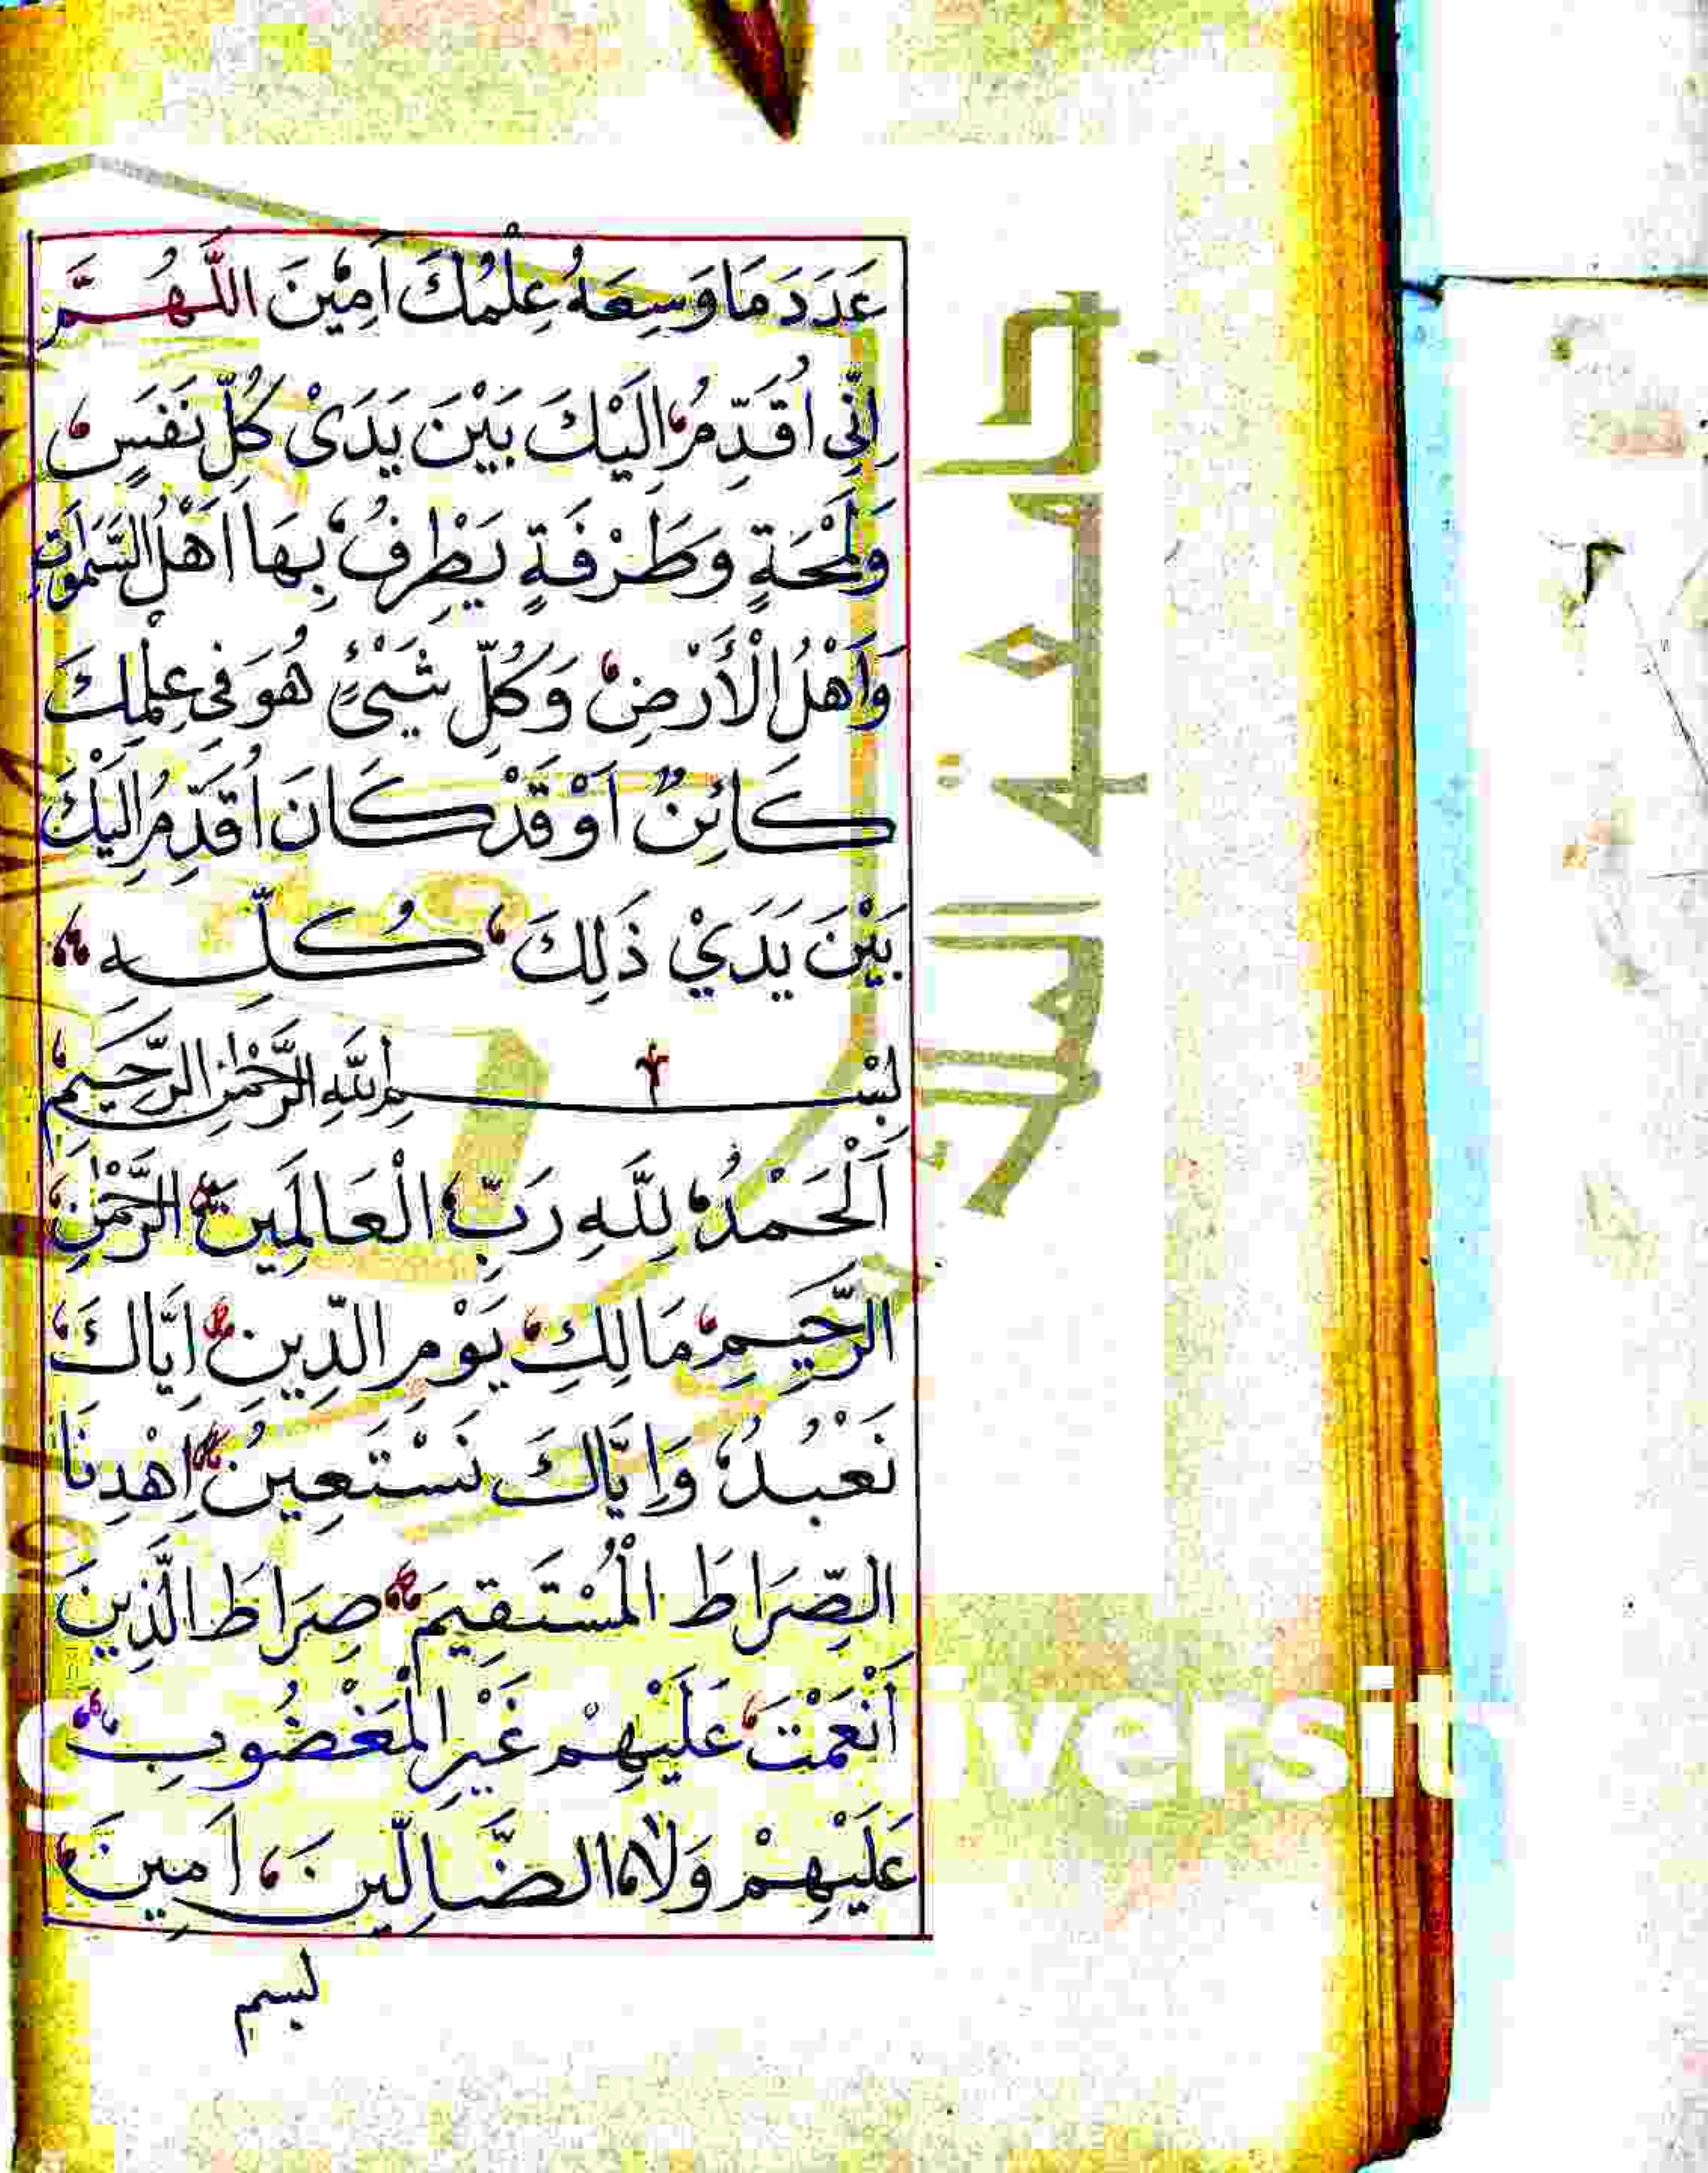 عَدَدَ مَا وَسِعَهُ عِلْمُكَ اَمِيْنَ اللَّهُمَّ
اِنِّي اُقَدِّمُ اِلَيْكَ بَيْنَ يَدَىْ كُلِّ نَفَسٍ
وَلَمْحَةٍ وَطَرْفَةٍ يَطْرِفُ بِهَا اَهْلُ السَّمَوَاتِ
وَاَهْلُ الْأَرْضِ وَكُلِّ شَيْئٍ هُوَ فِي عِلْمِكَ
كَائِنٌ اَوْ قَدْ كَانَ اُقَدِّمُ اِلَيْكَ
بَيْنَ يَدَيْ ذَلِكَ كُلِّهِ
بِسْمِ اللَّهِ الرَّحْمٰنِ الرَّحِيمِ
اَلْحَمْدُ لِلَّهِ رَبِّ الْعَالَمِينَ الرَّحْمٰنِ
الرَّحِيمِ مَالِكِ يَوْمِ الدِّينِ اِيَّاكَ
نَعْبُدُ وَاِيَّاكَ نَسْتَعِينُ اِهْدِنَا
الصِّرَاطَ الْمُسْتَقِيمَ صِرَاطَ الَّذِينَ
اَنْعَمْتَ عَلَيْهِمْ غَيْرِ الْمَغْضُوبِ
عَلَيْهِمْ وَلَا الضَّالِّينَ اَمِينَ
بسم
جامعة الملك
iversit